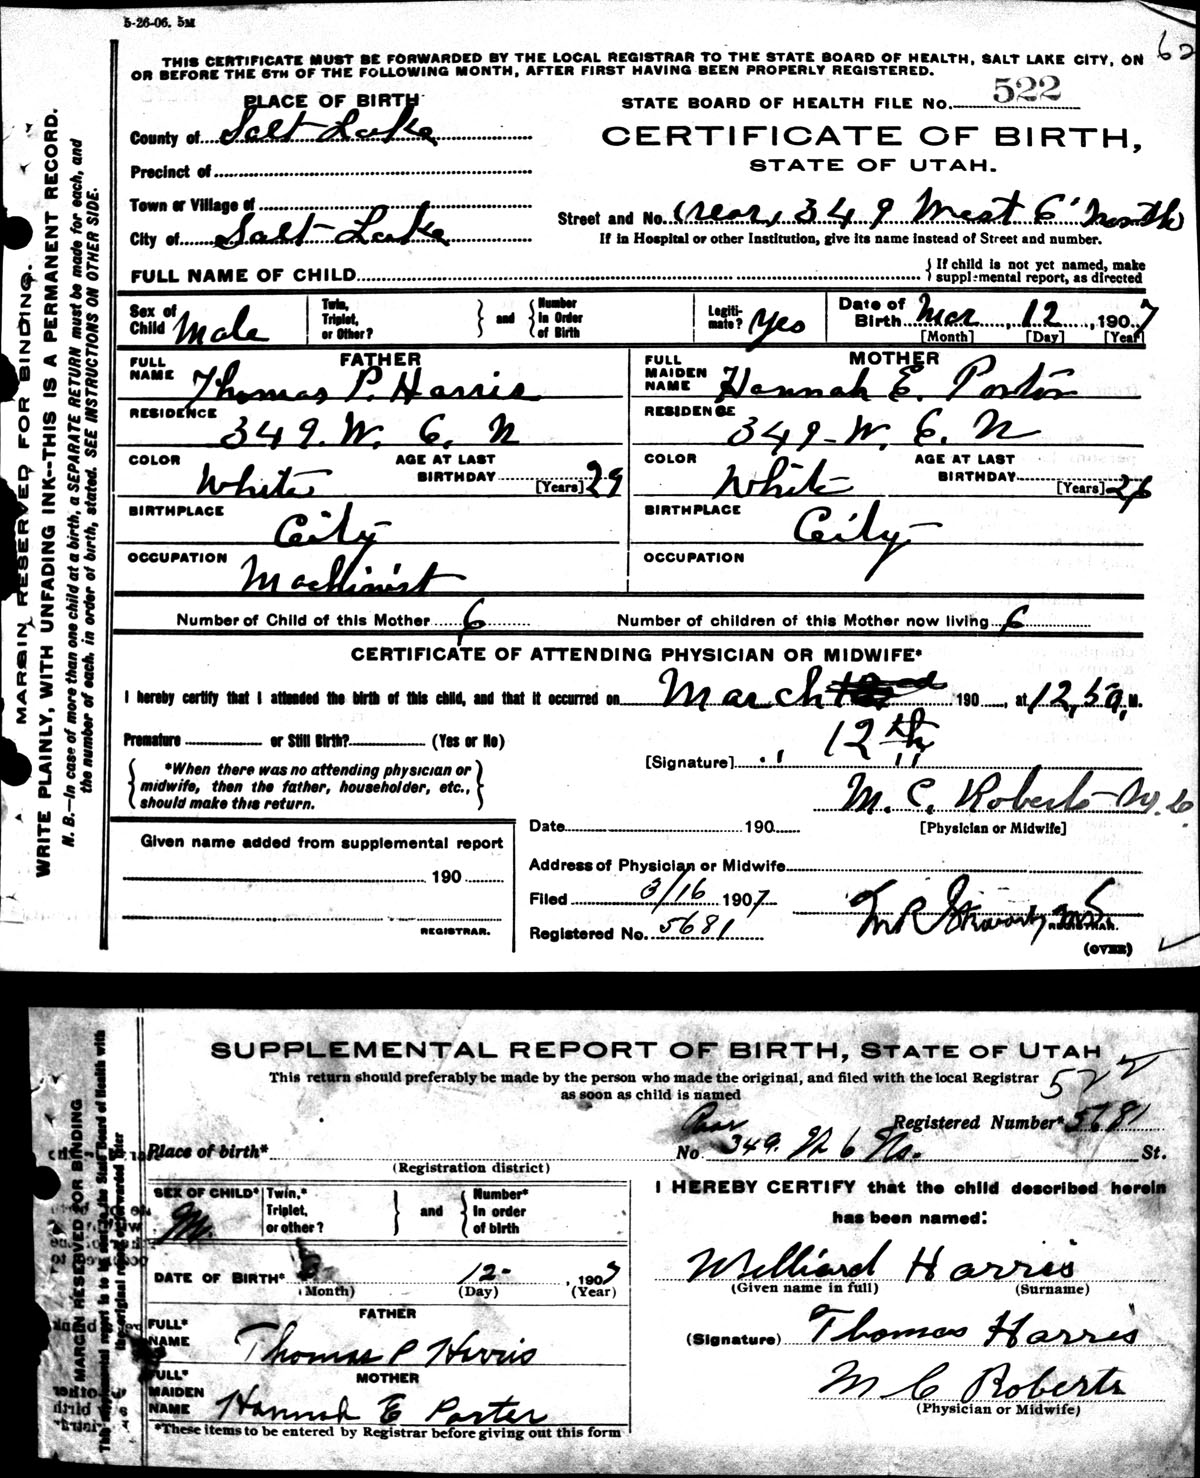 5-26-06. 5M
62
THIS CERTIFICATE MUST BE FORWARDED BY THE LOCAL REGISTRAR TO THE STATE BOARD OF HEALTH, SALT LAKE CITY, ON
OR BEFORE THE 5TH OF THE FOLLOWING MONTH, AFTER FIRST HAVING BEEN PROPERLY REGISTERED.
PLACE OF BIRTH
STATE BOARD OF HEALTH FILE No. 522
County of Salt Lake
CERTIFICATE OF BIRTH,
STATE OF UTAH.
Precinct of
Town or Village of
Street and No. (rear) 349 West 6 North
City of Salt Lake
If in Hospital or other Institution, give its name instead of Street and number.
FULL NAME OF CHILD
If child is not yet named, make
supplemental report, as directed
Sex of Child Male
Twin, Triplet, or Other?
and
Number In Order of Birth
Legitimate? Yes
Date of Birth Mar 12, 1907
[Month] [Day] [Year]
FATHER
FULL NAME Thomas P. Harris
RESIDENCE 349. W. 6. N
COLOR White
AGE AT LAST BIRTHDAY 29 [Years]
BIRTHPLACE City
OCCUPATION Machinist
MOTHER
FULL MAIDEN NAME Hannah E. Porter
RESIDENCE 349 - W. 6. N
COLOR White
AGE AT LAST BIRTHDAY 26 [Years]
BIRTHPLACE City
OCCUPATION
Number of Child of this Mother 6
Number of children of this Mother now living 6
CERTIFICATE OF ATTENDING PHYSICIAN OR MIDWIFE*
I hereby certify that I attended the birth of this child, and that it occurred on March 190 , at 12,50, M.
12th
Premature or Still Birth? (Yes or No)
[Signature]
*When there was no attending physician or
midwife, then the father, householder, etc.,
should make this return.
M. C. Roberts M.D.
[Physician or Midwife]
Date 190
Given name added from supplemental report
190
REGISTRAR.
Address of Physician or Midwife
Filed 3/16 1907
Registered No. 5681
REGISTRAR.
(OVER)
MARGIN RESERVED FOR BINDING.
WRITE PLAINLY, WITH UNFADING INK--THIS IS A PERMANENT RECORD.
N. B.—In case of more than one child at a birth, a SEPARATE RETURN must be made for each, and
the number of each, in order of birth, stated. SEE INSTRUCTIONS ON OTHER SIDE.
SUPPLEMENTAL REPORT OF BIRTH, STATE OF UTAH
This return should preferably be made by the person who made the original, and filed with the local Registrar
as soon as child is named
522
Registered Number* 5681
Place of birth*
(Registration district)
No 349. W 6 No. St.
SEX OF CHILD* M.
Twin,* Triplet, or other?
and
Number* In order of birth
DATE OF BIRTH* 3 12- , 1907
(Month) (Day) (Year)
FATHER
FULL* NAME Thomas P Harris
MOTHER
FULL* MAIDEN NAME Hannah E Porter
*These items to be entered by Registrar before giving out this form
I HEREBY CERTIFY that the child described herein
has been named:
Williard Harris
(Given name in full) (Surname)
(Signature) Thomas Harris
M C Roberts
(Physician or Midwife)
MARGIN RESERVED FOR BINDING